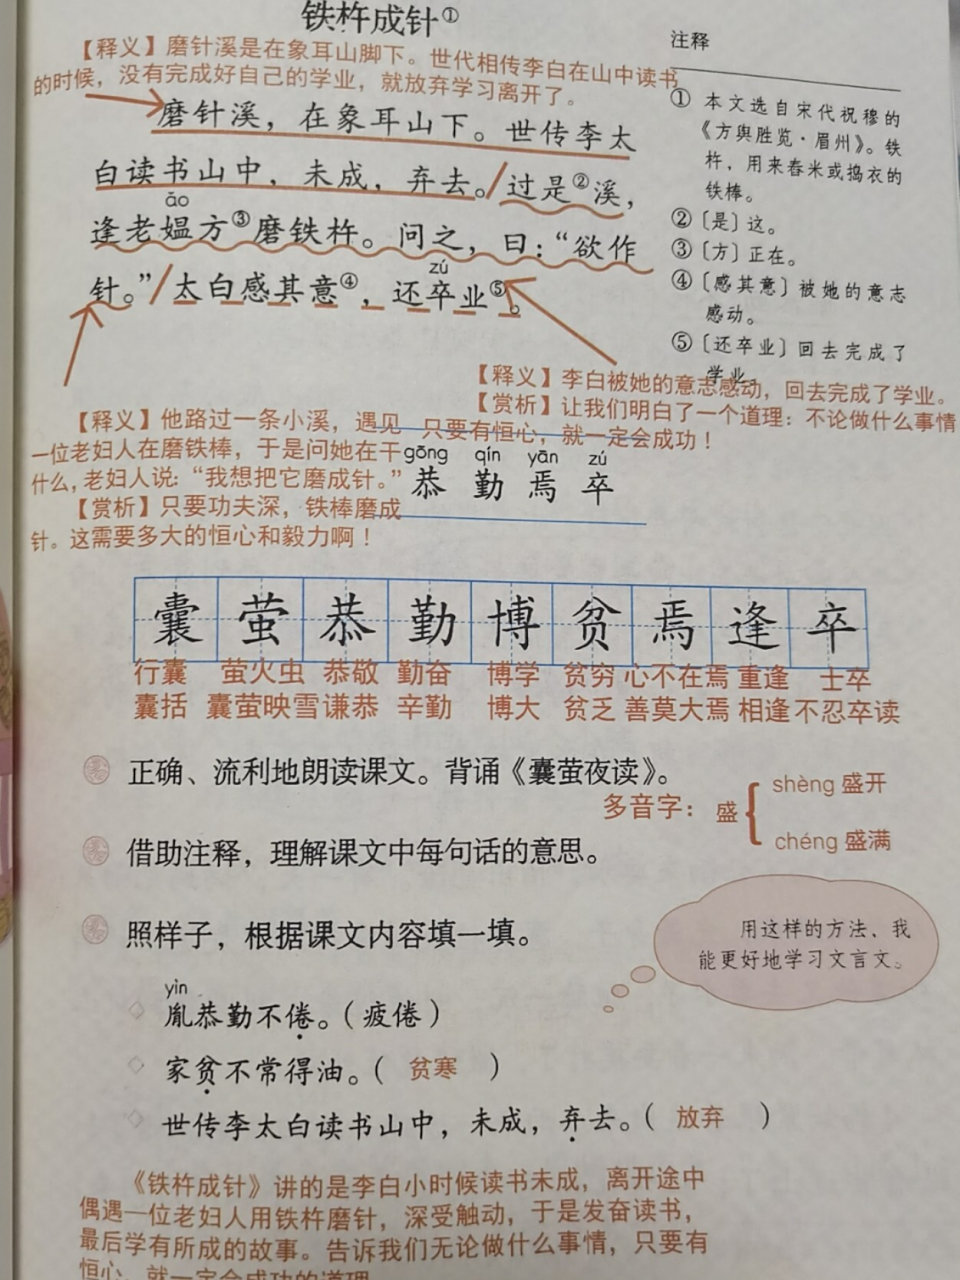 铁杵成针①
【释义】磨针溪是在象耳山脚下。世代相传李白在山中读书
的时候，没有完成好自己的学业，就放弃学习离开了。
磨针溪，在象耳山下。世传李太
白读书山中，未成，弃去。/过是②溪，
ǎo
逢老媪方③磨铁杵。问之，曰：“欲作
zú
针。”/太白感其意④，还卒业⑤。
注释
① 本文选自宋代祝穆的
《方舆胜览·眉州》。铁
杵，用来舂米或捣衣的
铁棒。
②〔是〕这。
③〔方〕正在。
④〔感其意〕被她的意志
感动。
⑤〔还卒业〕回去完成了
学业。
【释义】李白被她的意志感动，回去完成了学业。
【赏析】让我们明白了一个道理：不论做什么事情
只要有恒心，就一定会成功！
【释义】他路过一条小溪，遇见
一位老妇人在磨铁棒，于是问她在干
什么，老妇人说：“我想把它磨成针。”
【赏析】只要功夫深，铁棒磨成
针。这需要多大的恒心和毅力啊！
gōng qín yān zú
恭 勤 焉 卒
囊 萤 恭 勤 博 贫 焉 逢 卒
行囊 萤火虫 恭敬 勤奋 博学 贫穷 心不在焉 重逢 士卒
囊括 囊萤映雪 谦恭 辛勤 博大 贫乏 善莫大焉 相逢 不忍卒读
正确、流利地朗读课文。背诵《囊萤夜读》。
多音字：盛 { shèng 盛开
chéng 盛满
借助注释，理解课文中每句话的意思。
照样子，根据课文内容填一填。
用这样的方法，我
能更好地学习文言文。
yìn
胤恭勤不倦。（疲倦）
家贫不常得油。（ 贫寒 ）
世传李太白读书山中，未成，弃去。（ 放弃 ）
《铁杵成针》讲的是李白小时候读书未成，离开途中
偶遇一位老妇人用铁杵磨针，深受触动，于是发奋读书，
最后学有所成的故事。告诉我们无论做什么事情，只要有
恒心，就一定会成功的道理